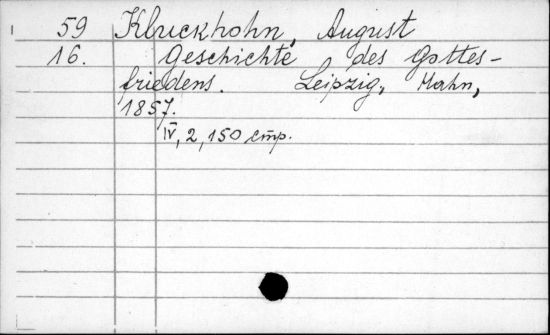 59 Kluckhohn, August
16. Geschichte des Gottes-
friedens. Leipzig, Hahn,
1857.
IV, 2, 150 стр.